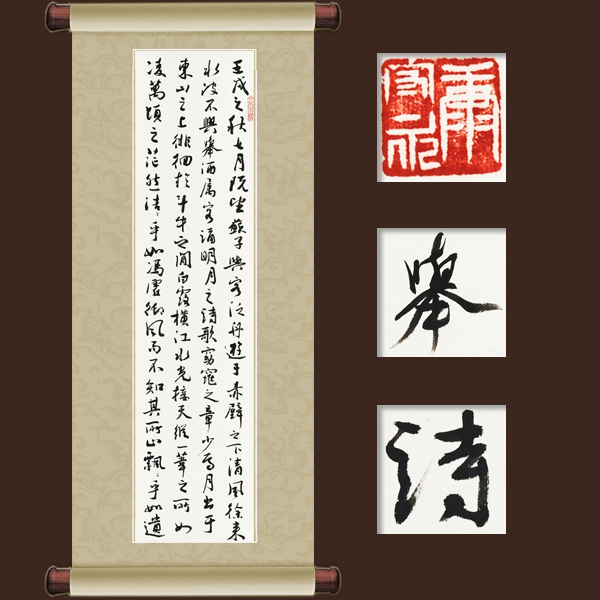 壬戌之秋七月既望蘇子與客泛舟遊于赤壁之下清風徐來
水波不興舉酒属客誦明月之詩歌窈窕之章少焉月出于
東山之上徘徊於斗牛之間白露橫江水光接天縱一葦之所如
凌萬頃之茫然浩浩乎如馮虛御風而不知其所止飄飄乎如遺
舉
詩